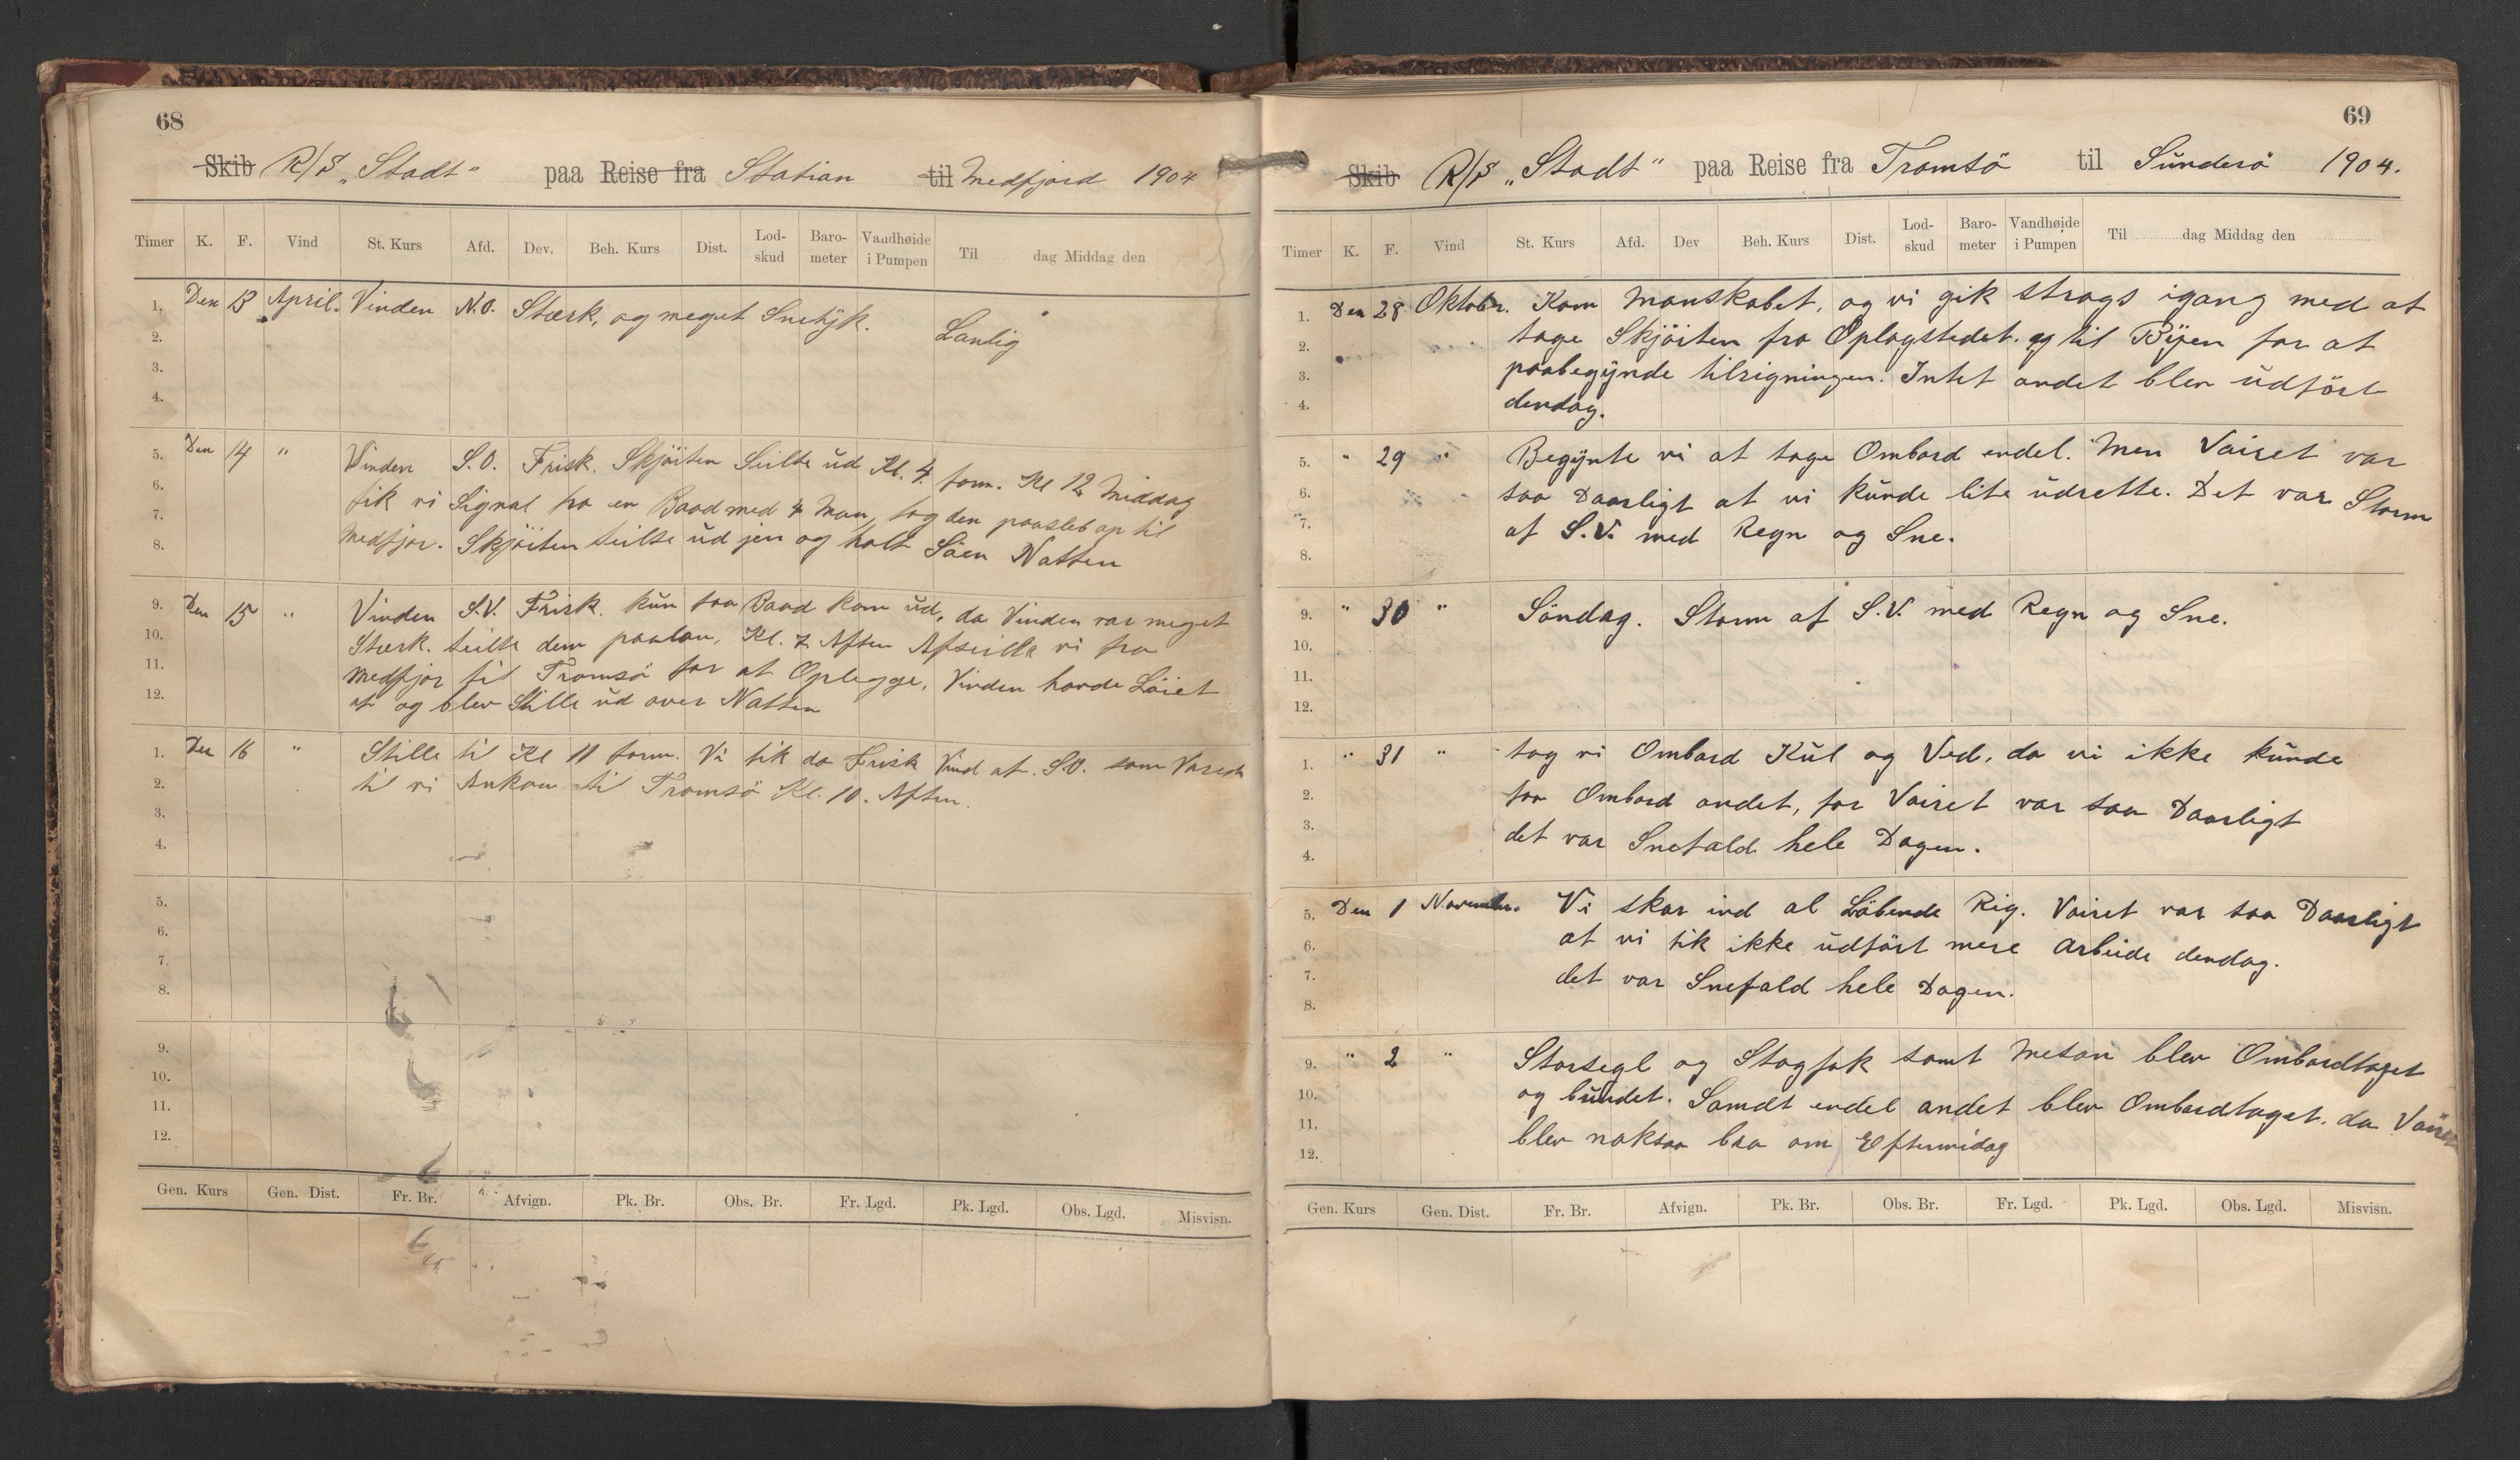 68
Skib R/S „Stadt" paa Reise fra Station til Medfjord 1904
Timer K. F. Vind St. Kurs Afd. Dev. Beh. Kurs Dist. Lod-skud Baro-meter Vandhøide i Pumpen Til dag Middag den
1. Den 13 April. Vinden N.O. Stærk, og meget Snetÿk.
2. Landlig
3.
4.
5. Den 14 " Vinden S.O. Frisk. Skjöiten Seilte ud Kl. 4 form. Kl 12 Middag
6. fik vi Signal fra en Baad med 4 Man, tog den paasleb op til
7. Medfjor. Skjöiten seilte ud jen og holt Söen Natten
8.
9. Den 15 " Vinden S.V. Frisk. kun faa Baad kom ud, da Vinden var meget
10. Stærk. seilte dem paalan, Kl. 7. Aften Afseilte vi fra
11. Medfjor til Tromsö for at Oplegge, Vinden havde Löiet
12. af og blev Stille ud over Natten
1. Den 16 " Stille til Kl 11 form. Vi fik da Frisk Vind af S.O. som Varede
2. til vi Ankom til Tromsö Kl. 10. Aften.
3.
4.
5.
6.
7.
8.
9.
10.
11.
12.
Gen. Kurs Gen. Dist. Fr. Br. Afvign. Pk. Br. Obs. Br. Fr. Lgd. Pk. Lgd. Obs. Lgd. Misvisn.
69
Skib R/S „Stadt" paa Reise fra Tromsö til Sünderö 1904.
Timer K. F. Vind St. Kurs Afd. Dev Beh. Kurs Dist. Lod-skud Baro-meter Vandhøide i Pumpen Til dag Middag den
1. Den 28 Oktobr. Kom Manskabet, og vi gik strags igang med at
2. tage Skjöiten fra Oplagstedet. og til Bÿen for at
3. paabegÿnde tilrigningen. Intet andet blev üdfört
4. dendag.
5. " 29 " Begÿnte vi at tage Ombord endel. Men Vairet var
6. saa Daarligt at vi künde lite üdrette. Det var Storm
7. af S.V. med Regn og Sne.
8.
9. " 30 " Söndag. Storm af S.V. med Regn og Sne.
10.
11.
12.
1. " 31 " tog vi Ombord Kül og Ved, da vi ikke künde
2. faa Ombord andet, for Vairet var saa Daarligt
3. det var Snefald hele Dagen.
4.
5. Den 1 Novembr. Vi skar ind al Löbende Rig. Vairet var saa Daarligt
6. at vi fik ikke üdfört mere Arbeide dendag.
7. det var Snefald hele Dagen.
8.
9. " 2 " Storsegl og Stagfok samt Mesan blev Ombordtaget
10. og bundet. Samdt endel andet blev Ombordtaget. da Vairet
11. blev noksaa bra om Eftermidag
12.
Gen. Kurs Gen. Dist. Fr. Br. Afvign. Pk. Br. Obs. Br. Fr. Lgd. Pk. Lgd. Obs. Lgd. Misvisn.